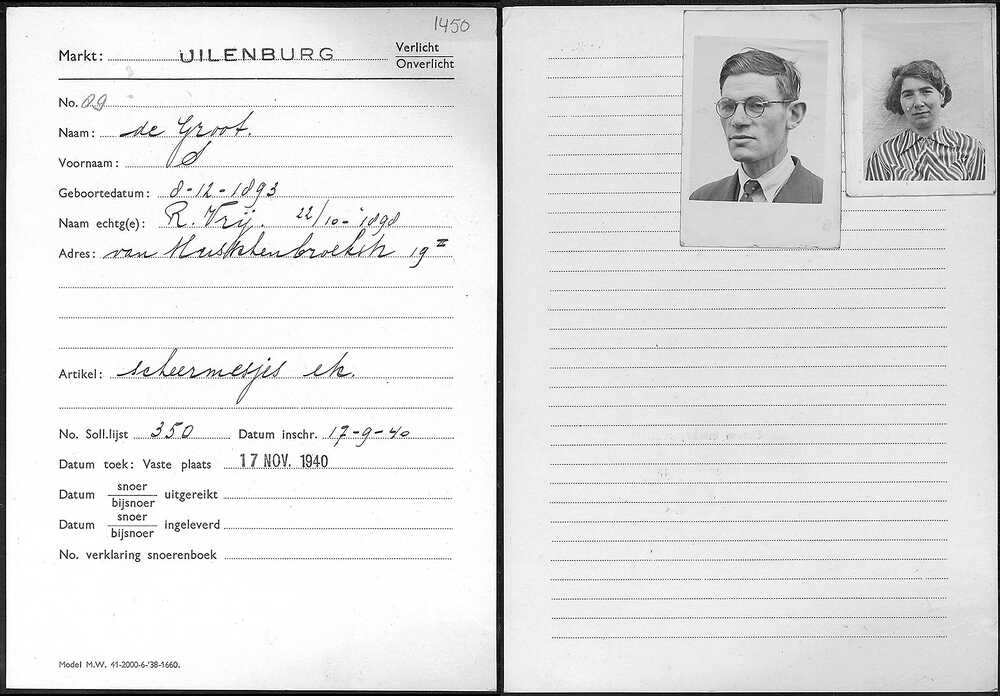 1450
Markt: UILENBURG Verlicht
Onverlicht
No. 09
Naam: de Groot.
Voornaam: S
Geboortedatum: 8-12-1893
Naam echtg(e): R. Vrij. 22/10-1898
Adres: van Musschenbroekstr 19 II
Artikel: scheermesjes enz.
No. Soll.lijst 350 Datum inschr. 17-9-40
Datum toek: Vaste plaats 17 NOV. 1940
Datum snoer
bijsnoer uitgereikt
Datum snoer
bijsnoer ingeleverd
No. verklaring snoerenboek
Model M.W. 41-2000-6-'38-1660.